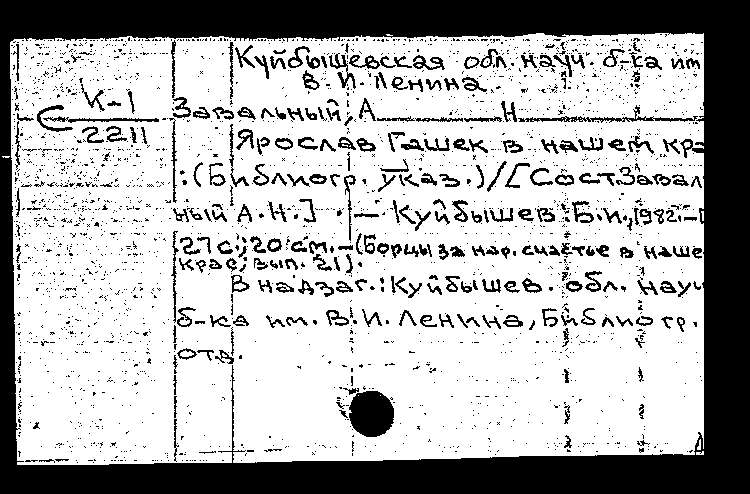 Куйбышевская обл. науч. б-ка им
В. И. Ленина
К-1
Завальный, А Н
С 2211
Ярослав Гашек в нашем кра
:(Библиогр. указ.)/[Сост.Завал
ный А.Н.] . — Куйбышев :Б.и.,1982.—
27с.;20 см.—(Борцы за нар. счастье в наше
крае; вып. 21).
В надзаг.:Куйбышев. обл. науч
б-ка им. В.И. Ленина, Библиогр.
отд.